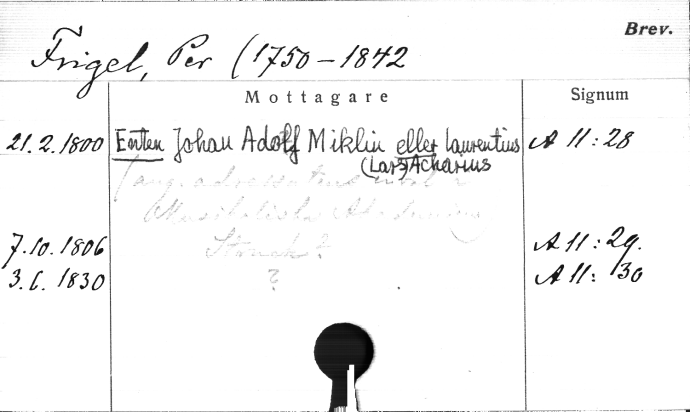 Brev.
Frigel, Per (1750-1842
Mottagare Signum
21.2.1800 Enten Johan Adolf Miklin eller Laurentius A 11:28
(Lars) Acharius
Musikaliska Akademin
7.10.1806 A 11:29.
3.6.1830 ? A 11:30